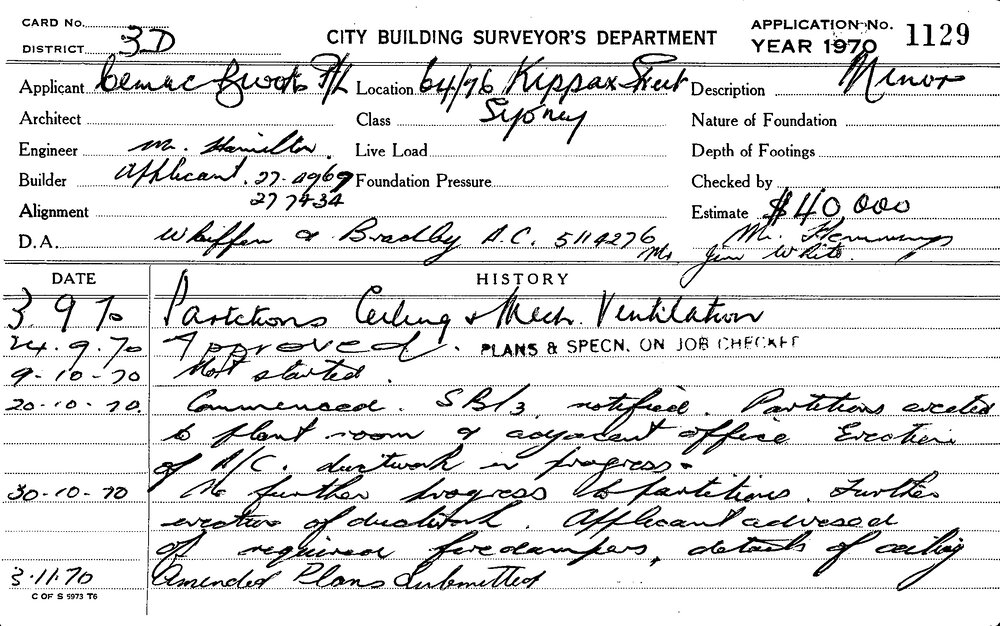 CARD No.
DISTRICT 3D
CITY BUILDING SURVEYOR'S DEPARTMENT
APPLICATION No. 1129
YEAR 1970
Applicant Cemac P/L Location 64/76 Kippax Street Description Minor
Architect Class Sydney Nature of Foundation
Engineer Mr. Hamilton. Live Load Depth of Footings
Builder Applicant. 27-4969 Foundation Pressure Checked by
27 7434
Alignment Estimate $40,000
D.A. Whiffen & Bradby A.C. 5114276 Mr. Hemmings
Mr Jim White.
DATE HISTORY
3 9 70 Partitions Ceiling & Mech. Ventilation
24.9.70 Approved. PLANS & SPECN. ON JOB CHECKET
9-10-70 Not started.
20-10-70. Commenced. SB/3 notified. Partitions erected
to plant room & adjacent office Erection
of A/C. ductwork in progress.
30-10-70 No further progress to partitions. Further
erection of ductwork. Applicant advised
of required firedampers, details of ceiling
3.11.70 Amended Plans Submitted
C OF S 5973 T6